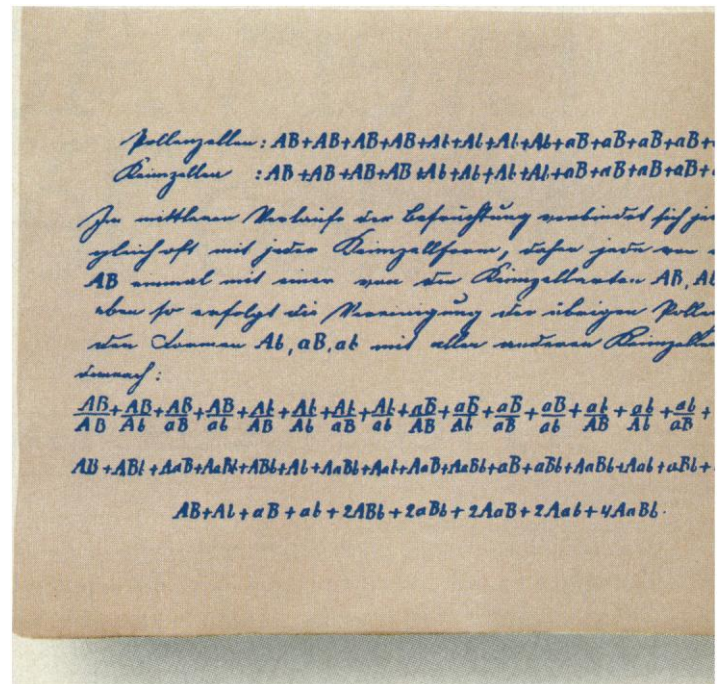 Pollenzellen: AB+AB+AB+AB+Ab+Ab+Ab+Ab+aB+aB+aB+aB+
Keimzellen : AB+AB+AB+AB+Ab+Ab+Ab+Ab+aB+aB+aB+aB+
Im mittleren Verlaufe der Befruchtung verbindet sich
gleich oft mit jeder Keimzellform, daher jede von
AB einmal mit einer von den Keimzellarten AB, Ab
eben so erfolgt die Vereinigung der übrigen Polle
den Formen Ab, aB, ab mit allen anderen Keimzelle
demnach:
AB/AB+AB/Ab+AB/aB+AB/ab+Ab/AB+Ab/Ab+Ab/aB+Ab/ab+aB/AB+aB/Ab+aB/aB+aB/ab+ab/AB+ab/Ab+ab/aB+
AB+ABb+AaB+AaBb+ABb+Ab+AaBb+Aab+AaB+AaBb+aB+aBb+AaBb+Aab+aBb+
AB+Ab+aB+ab+2ABb+2aBb+2AaB+2Aab+4AaBb.